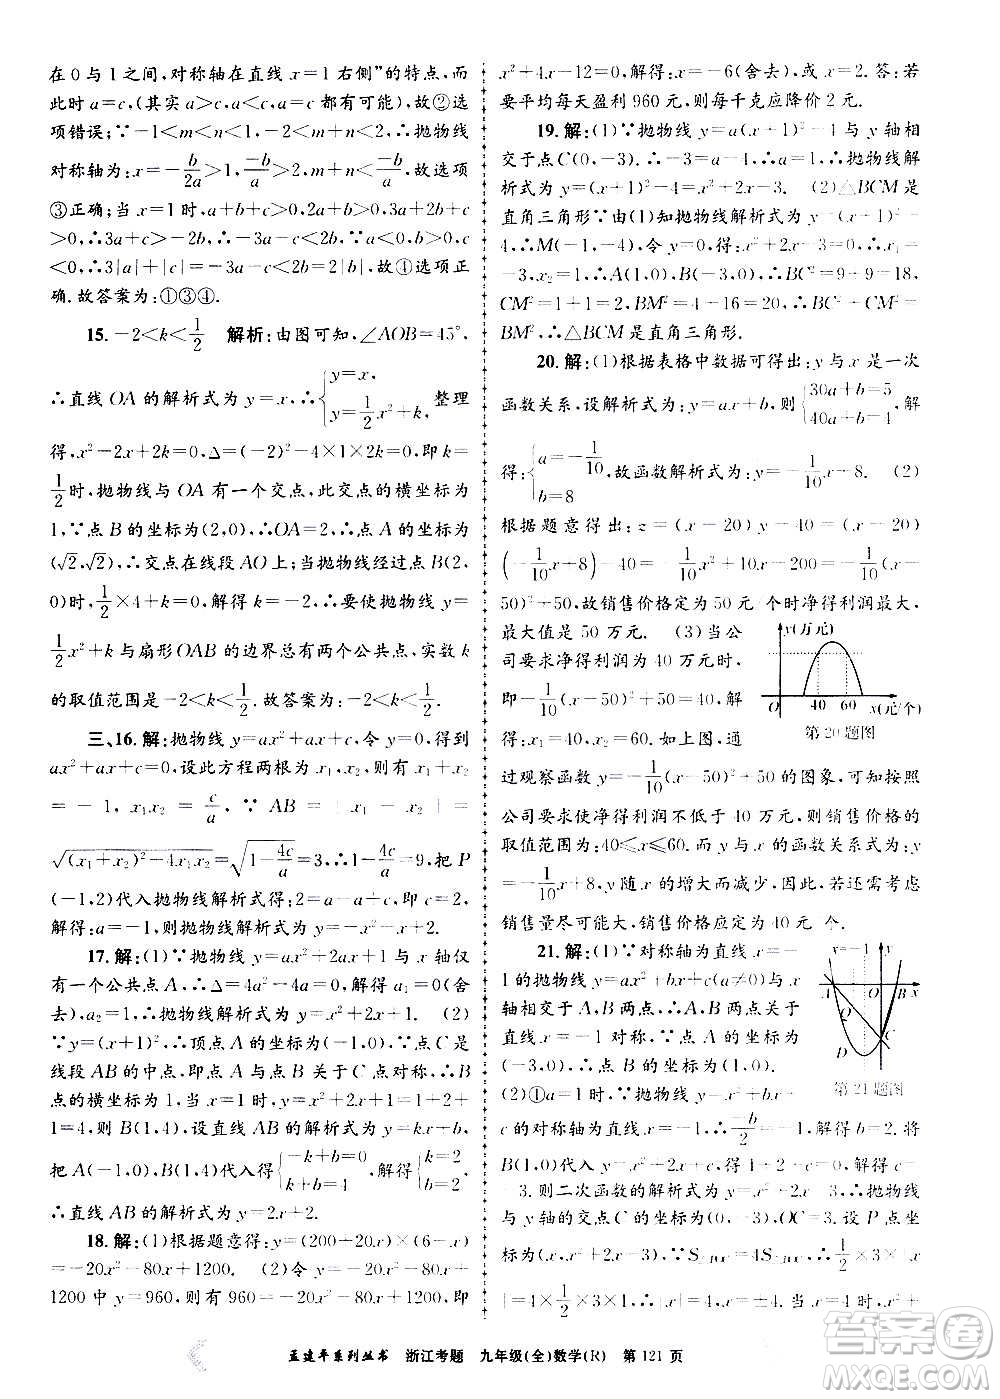 在0与1之间,对称轴在直线x=1右侧”的特点,而
此时a=c,(其实a>c,a<c,a=c都有可能),故②选
项错误;∵-1<m<n<1,∴-2<m+n<2,∴抛物线
对称轴为:x=-b/2a>1/2,b/a<2,m+n=c/a,故选项
③正确;当x=1时,a+b+c>0,2a+c>0,3a+2b+c
>0,∴3a+c>-2b,∴-3a-c<2b,∵a>0,b<0,c
<0,∴3|a|+|c|=-3a-c<2b=2|b|,故④选项正
确.故答案为:①③④.
15.-2<k<1/2 解析:由图可知,∠AOB=45°,
∴直线OA的解析式为y=x,∴{y=x, y=1/2x²+k,整理
得,x²-2x+2k=0,Δ=(-2)²-4×1×2k=0,即k=
1/2时,抛物线与OA有一个交点,此交点的横坐标为
1,∵点B的坐标为(2,0),∴OA=2,∴点A的坐标为
(√2,√2),∴交点在线段AO上;当抛物线经过点B(2,
0)时,1/2×4+k=0,解得k=-2,∴要使抛物线y=
1/2x²+k与扇形OAB的边界总有两个公共点,实数k
的取值范围是-2<k<1/2.故答案为:-2<k<1/2.
三、16.解:抛物线y=ax²+ax+c,令y=0,得到
ax²+ax+c=0,设此方程两根为x₁,x₂,则有x₁+x₂
=-1,x₁x₂=c/a,∵AB=|x₁-x₂|=
√(x₁+x₂)²-4x₁x₂=√1-4c/a=3,∴c/a=-2,把P
(-1,2)代入抛物线解析式得:2=a-a+c,c=2,解得
a=-1,则抛物线解析式为y=-x²-x+2.
17.解:(1)∵抛物线y=ax²+2ax+1与x轴仅
有一个公共点A,∴Δ=4a²-4a=0,解得a₁=0(舍
去),a₂=1,∴抛物线解析式为y=x²+2x+1. (2)
∵y=(x+1)²,∴顶点A的坐标为(-1,0),∵点C是
线段AB的中点,即点A与点B关于C点对称,∴B
点的横坐标为1,当x=1时,y=x²+2x+1=1+2+1
=4,则B(1,4),设直线AB的解析式为y=kx+b,
把A(-1,0),B(1,4)代入得{-k+b=0 k+b=4,解得{k=2 b=2,
∴直线AB的解析式为y=2x+2.
18.解:(1)根据题意得:y=(200+20x)×(6-x)
=-20x²-80x+1200. (2)令y=-20x²-80x+
1200中y=960,则有960=-20x²-80x+1200,即
x²+4x-12=0,解得:x=-6(舍去),或x=2.答:若
要平均每天盈利960元,则每千克应降价2元.
19.解:(1)∵抛物线y=a(x+1)²-4与y轴相
交于点C(0,-3).∴-3=a-4.∴a=1.∴抛物线解
析式为y=(x+1)²-4=x²+2x-3. (2)△BCM是
直角三角形∵由(1)知抛物线解析式为y=(x+1)²-
4,∴M(-1,-4),令y=0,得:x²+2x-3=0,∴x₁=
-3,x₂=1,∴A(1,0),B(-3,0),∴BC²=9+9=18,
CM²=1+1=2,BM²=4+16=20,∴BC²+CM²=
BM²,∴△BCM是直角三角形.
20.解:(1)根据表格中数据可得出:y与x是一次
函数关系,设解析式为:y=ax+b,则{30a+b=5 40a+b=4,解
得:{a=-1/10, b=8,故函数解析式为:y=-1/10x+8. (2)
根据题意得出:z=(x-20)y-40=(x-20)
(-1/10x+8)-40=-1/10x²+10x-200=-1/10(x-
50)²+50,故销售价格定为50元/个时净得利润最大,
最大值是50万元. (3)当公
司要求净得利润为40万元时,
即-1/10(x-50)²+50=40,解
得:x₁=40,x₂=60.如上图,通
过观察函数y=-1/10(x-50)²+50的图象,可知按照
公司要求使净得利润不低于40万元,则销售价格的
取值范围为:40≤x≤60.而y与x的函数关系式为:y
=-1/10x+8,y随x的增大而减少,∴若还需考虑
销售量尽可能大,销售价格应定为40元/个.
y(万元)
O 40 60 x(元/个)
第20题图
21.解:(1)∵对称轴为直线x=-
1的抛物线y=ax²+bx+c(a≠0)与x
轴相交于A、B两点,∴A、B两点关于
直线x=-1对称,∵点A的坐标为
(-3,0),∴点B的坐标为(1,0).
x=-1
A O B x
Q
C
D
第21题图
(2)①a=1时,∵抛物线y=x²+bx+
c的对称轴为直线x=-1,∴-b/2=-1,解得b=2.将
B(1,0)代入y=x²+2x+c,得1+2+c=0,解得c=
-3.则二次函数的解析式为y=x²+2x-3,∴抛物线
与y轴的交点C的坐标为(0,-3),OC=3.设P点坐
标为(x,x²+2x-3),∵S△POC=4S△BOC,∴1/2×3×|x
|=4×1/2×3×1,∴|x|=4,x=±4.当x=4时,x²+
孟建平系列丛书 浙江考题 九年级(全)数学(R) 第121页
答案圈
MXQE.COM